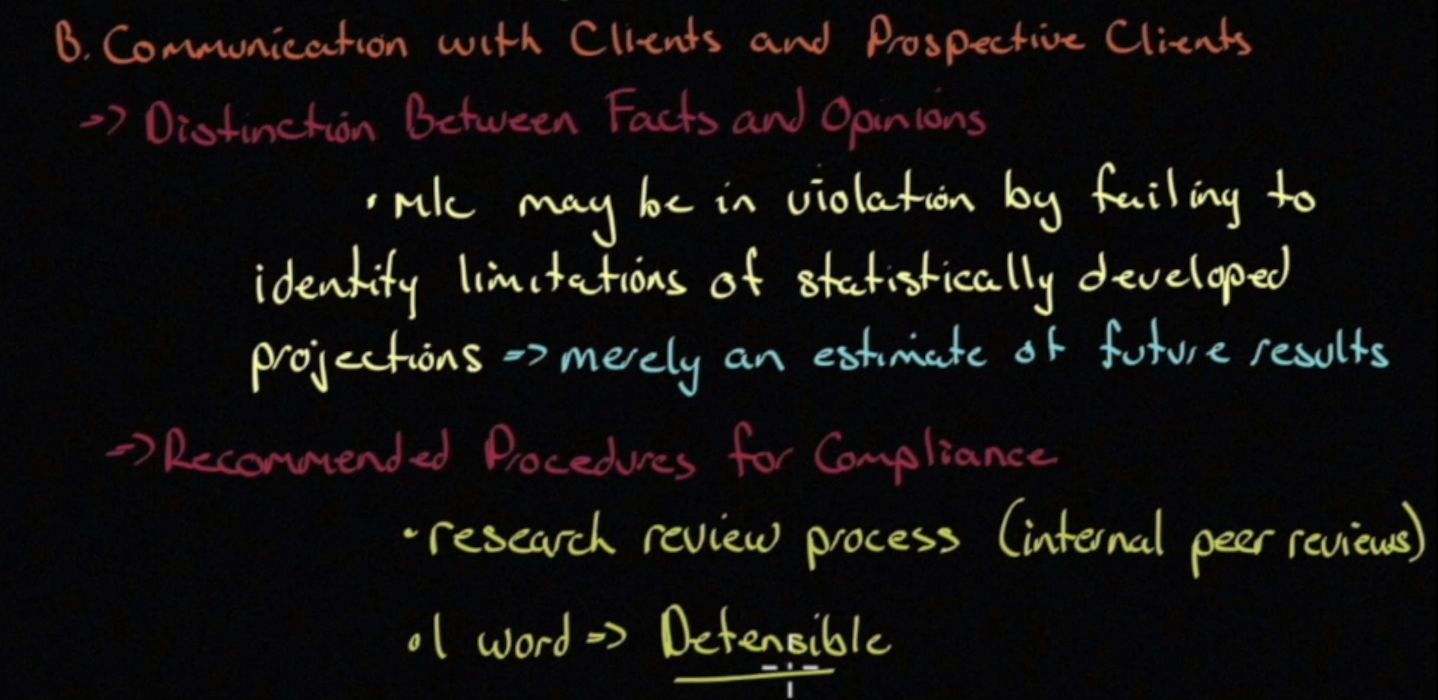 B. Communication with Clients and Prospective Clients
=> Distinction Between Facts and Opinions
• M/C may be in violation by failing to
identify limitations of statistically developed
projections => merely an estimate of future results
=> Recommended Procedures for Compliance
• research review process (internal peer reviews)
• 1 word => Defensible